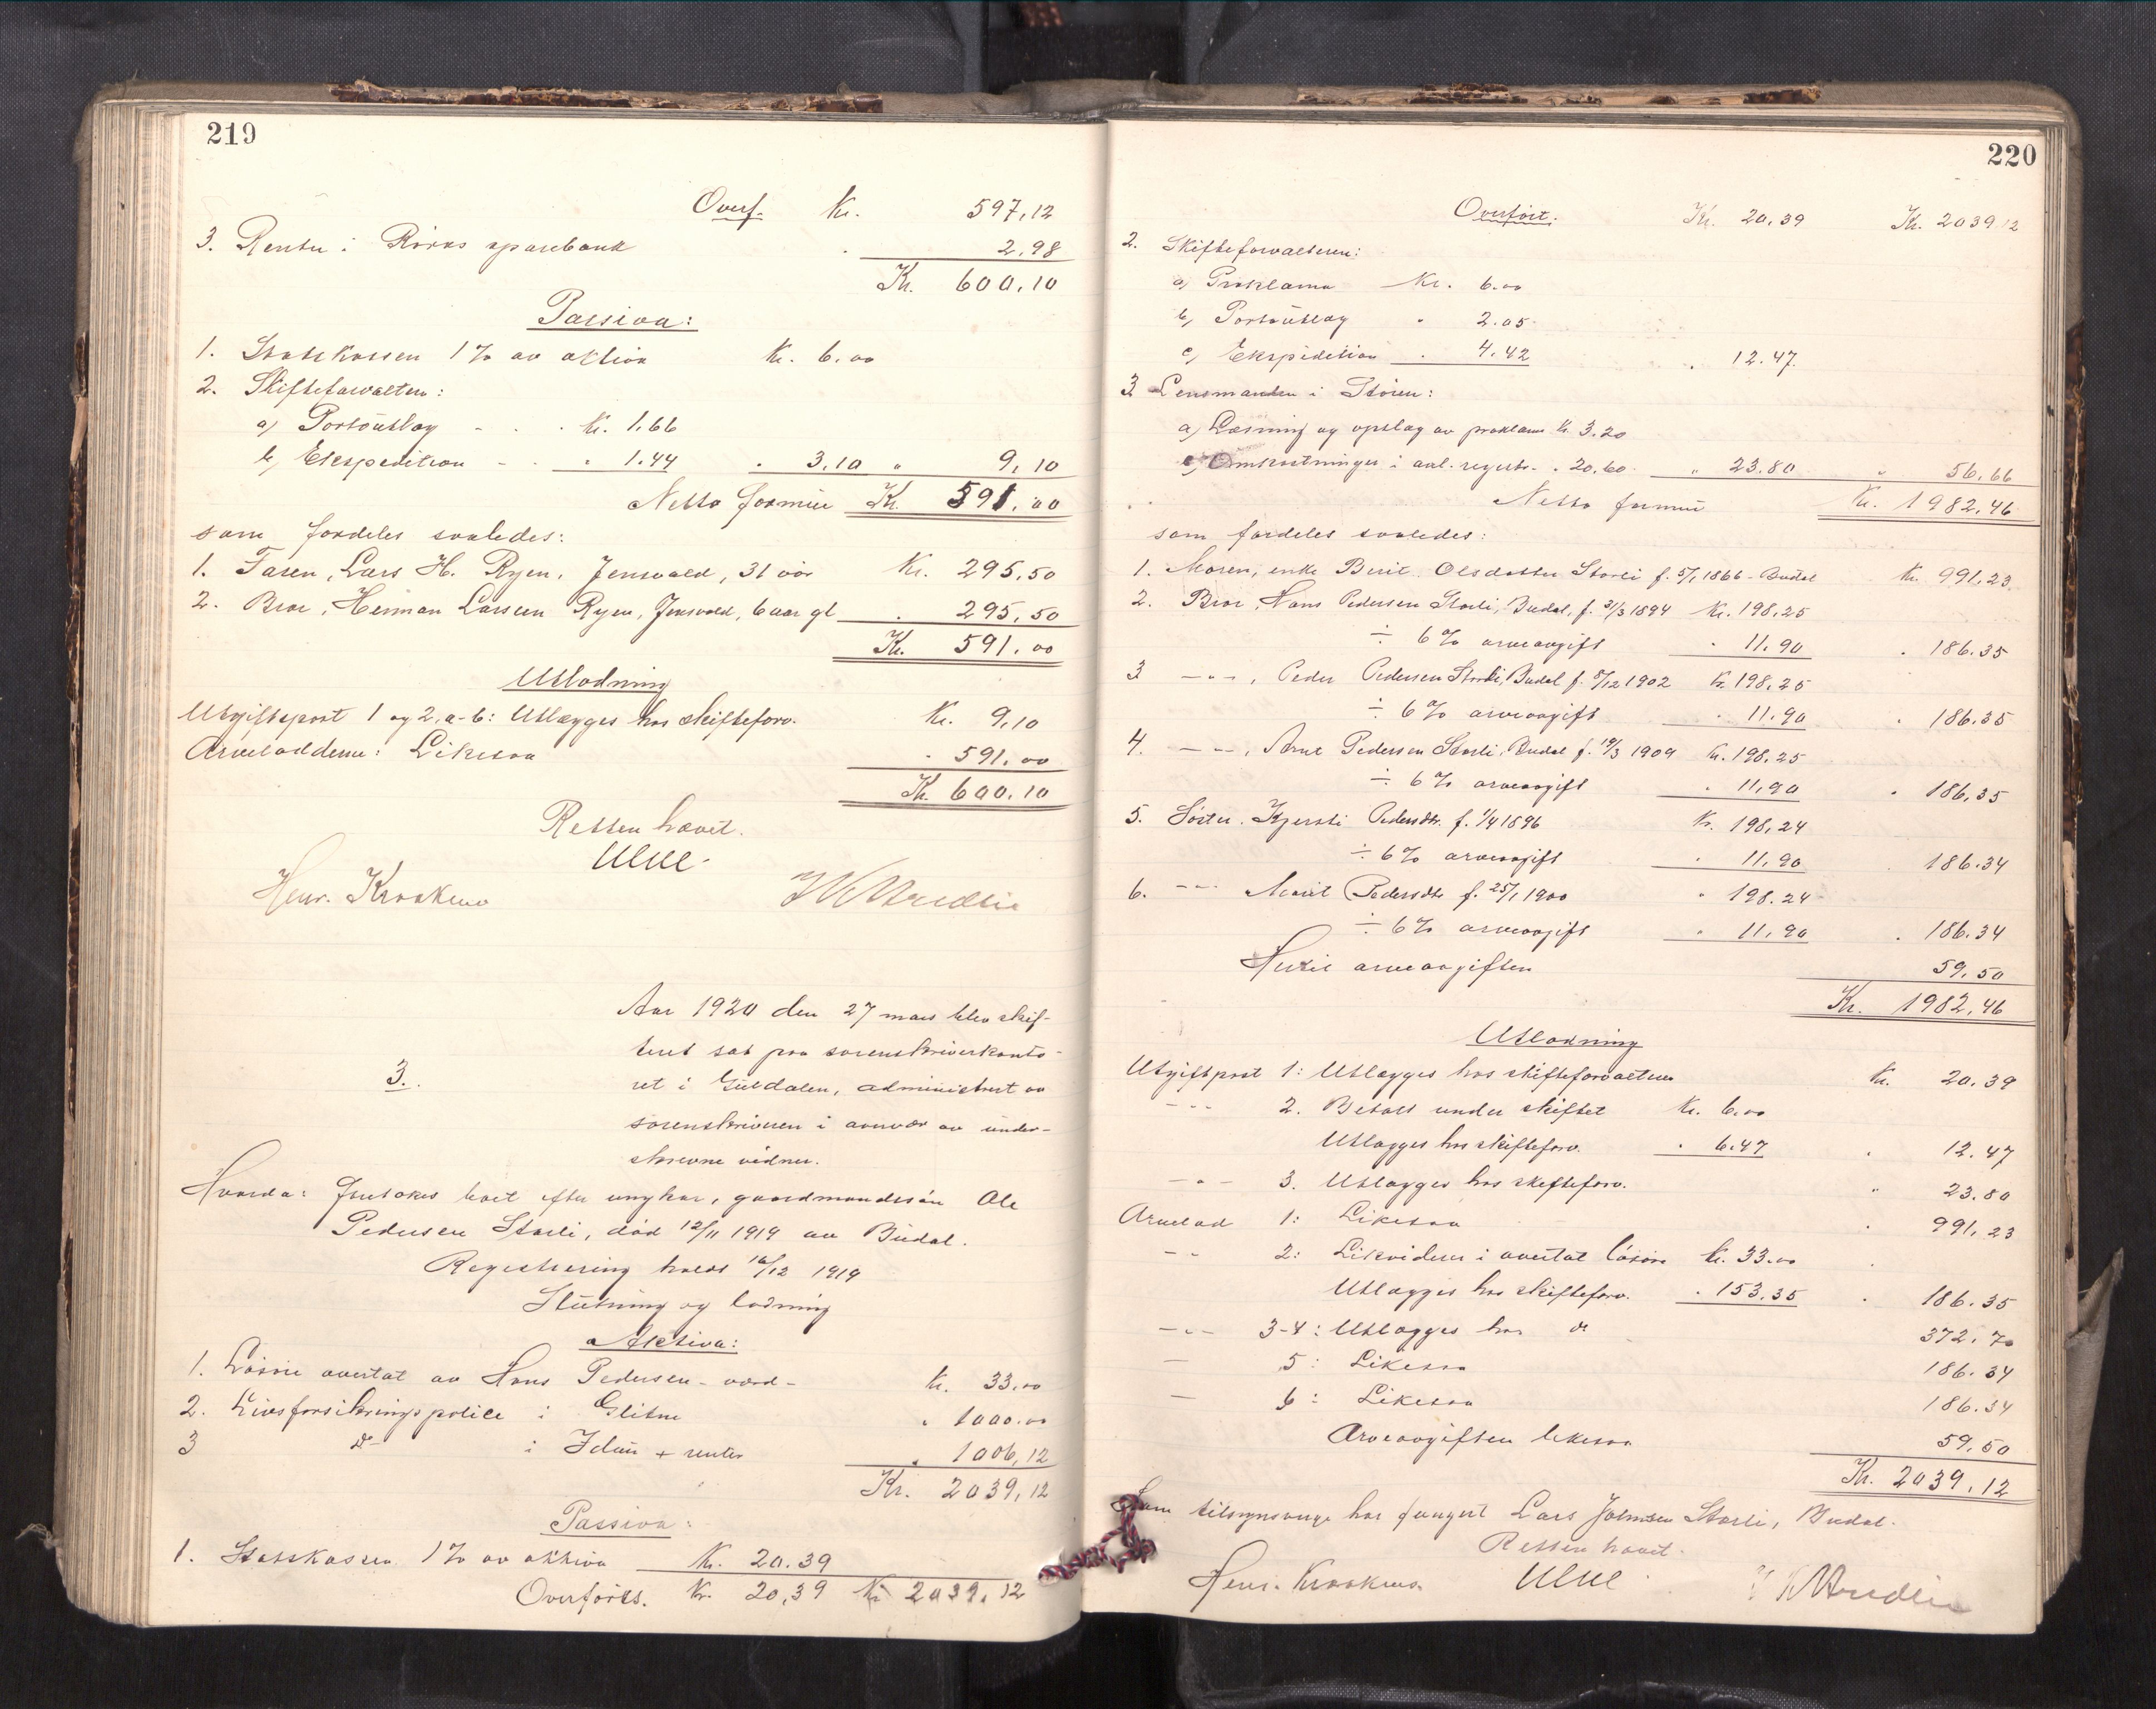 219
Overf. Kr. 597,12
3. Renter i Röros sparebank " 2,98
Kr. 600,10
Passiva:
1. Statskassen 1% av aktiva Kr. 6.00
2. Skifteforvalteren:
a) Portoutlæg - . . Kr. 1.66
b) Ekspedition - . . " 1.44 " 3,10 " 9,10
Netto formue Kr. 591,00
som fordeles saaledes:
1. Faren, Lars H. Ryen, Jensvold, 31 aar Kr. 295,50
2. Bror, Herman Larsen Ryen, Jensvold, 6 aar gl. " 295,50
Kr. 591.00
Utlodning
Utgiftspost 1 og 2, a-b: Utlægges hos skifteforv. Kr. 9,10
Arveloddene: Likesaa " 591.00
Kr. 600.10
Retten hævet.
Henr. Kraakmo
3.
Aar 1920 den 27 mars blev skif-
teret sat paa sorenskriverkonto-
ret i Guldalen, administrert av
sorenskriveren i nærvær av under-
skrevne vidner.
Hvorda: Foretokes boet efter ungkar, gaardmandssøn Ole
Pedersen Storli, død 12/11 1919 av Budal.
Registrering holdt 16/12 1919
Slutning og lodning
Aktiva:
1. Løsøre overtat av Hans Pedersen - værd - Kr. 33.00
2. Livsforsikringspolice i Glitne " 1000.00
3 do i Idun + renter " 1006,12
Kr. 2039,12
Passiva:
1. Statskassen 1% av aktiva Kr. 20.39
Overføres. Kr. 20,39 Kr. 2039.12
220
Overført. Kr. 20,39 Kr. 2039 12
2. Skifteforvalteren:
a) Proklama Kr. 6.00
b) Portoutlæg " 2.05
c) Ekspedition " 4.42 " 12.47.
3 Lensmanden i Støren:
a) Læsning og opslag av proklama Kr. 3.20
Omkostninger i anl. registr. " 20.60 " 23.80 " 56,66
Netto formue Kr. 1982,46
som fordeles saaledes:
1. Moren, enke Berit Olsdatter Storli f. 5/1 1866 - Budal Kr. 991,23
2. Bror, Hans Pedersen Storli, Budal, f. 31/3 1894 Kr. 198,25
÷ 6% arveavgift " 11.90 " 186.35
3 -"-, Peder Pedersen Storli, Budal f. 8/12 1902 Kr. 198,25
÷ 6% arveavgift " 11.90 " 186.35
4. -"-, Arne Pedersen Storli, Budal f. 19/3 1909 Kr. 198,25
÷ 6% arveavgift " 11,90 " 186,35
5. Söster. Kjersti Pedersdtr. f. 1/4 1896 Kr. 198,24
÷ 6% arveavgift " 11,90 186.34
6. -"- Marit Pedersdtr f. 25/1 1900 " 198.24
÷ 6% arveavgift " 11,90 " 186.34
Hertil arveavgiften 59.50
Kr. 1982,46
Utlodning
Utgiftpost 1: Utlægges hos skifteforvalteren Kr. 20.39
-"- 2. Betalt under skiftet Kr. 6.00
Utlægges hos skifteforv. " 6.47 " 12.47
-"- 3. Utlægges hos skifteforv. " 23.80
Arvelod 1: Likesaa " 991,23
-"- 2: Likvideres i overtat løsøre Kr. 33.00
Utlægges hos skifteforv. " 153.35 " 186.35
-"- 3-4: Utlægges hos do 372.70
- 5: Likesaa 186.34
- 6: Likesaa 186.34
Arveavgiften likesaa 59.50
Kr. 2039.12
Som tilsynsverge har fungert Lars Storli, Budal.
Retten hævet.
Henr. Kraakmo